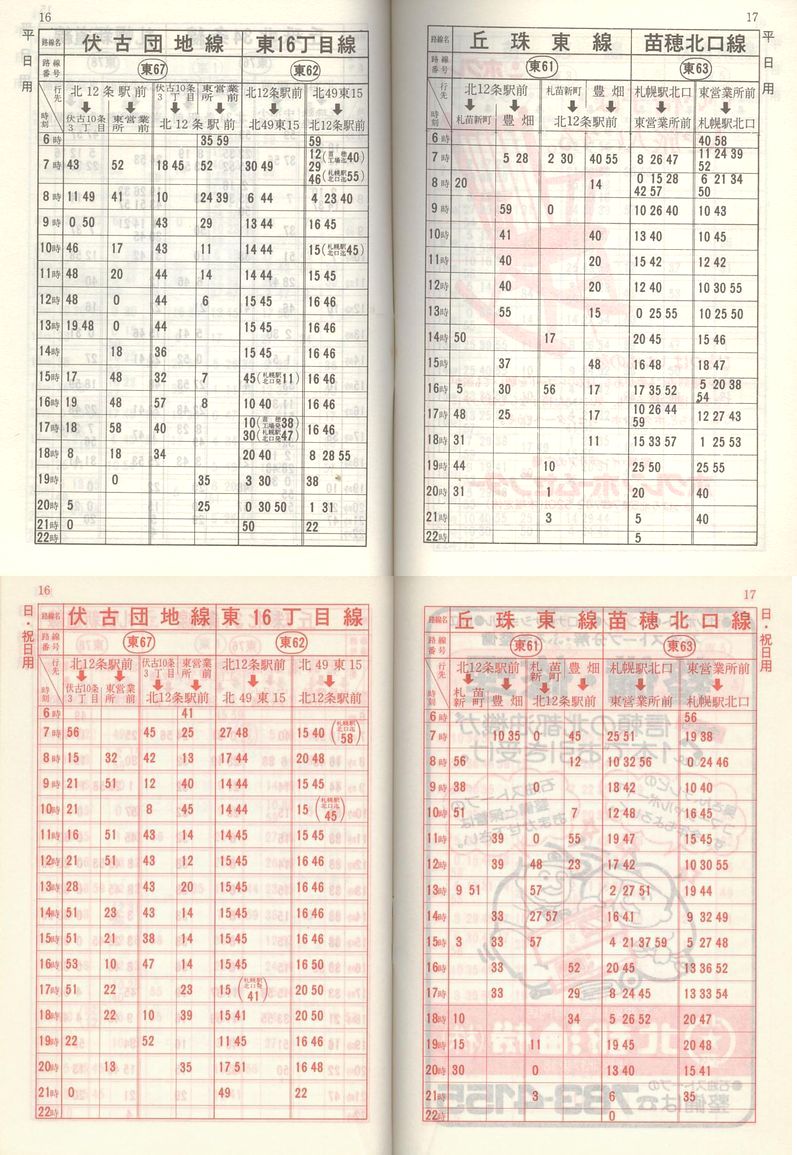 16
平日用
路線名 伏古団地線 東16丁目線
路線番号 東67 東62
行先 北12条駅前 伏古10条3丁目 東営業所 北12条駅前 北49東15
時刻 伏古10条3丁目 東営業所前 北12条駅前 北49東15 北12条駅前
6時 35 59 59
7時 43 52 18 45 52 30 49 12(苗穂工場迄40) 29 46(札幌駅北口迄55)
8時 11 49 41 10 24 39 6 44 4 23 40
9時 0 50 43 29 13 44 16 45
10時 46 17 43 11 14 44 15(札幌駅北口迄45)
11時 48 20 44 14 14 44 15 45
12時 48 0 44 6 15 45 16 46
13時 19 48 0 44 15 45 16 46
14時 18 36 15 45 16 46
15時 17 48 32 7 45(札幌駅北口発11) 16 46
16時 19 48 57 8 10 40 16 46
17時 18 58 40 10(苗穂工場発38) 30(札幌駅北口発47) 16 46
18時 8 18 34 20 40 8 28 55
19時 0 35 3 30 38
20時 5 25 0 30 50 1 31
21時 0 50 22
22時
17
平日用
路線名 丘珠東線 苗穂北口線
路線番号 東61 東63
行先 北12条駅前 札苗新町 豊畑 札幌駅北口 東営業所前
時刻 札苗新町 豊畑 北12条駅前 東営業所前 札幌駅北口
6時 40 58
7時 5 28 2 30 40 55 8 26 47 11 24 39 52
8時 20 14 0 15 28 42 57 6 21 34 50
9時 59 0 10 26 40 10 43
10時 41 40 13 40 10 45
11時 40 20 15 42 12 42
12時 40 20 12 40 10 30 55
13時 55 15 0 25 55 10 25 50
14時 50 17 20 45 15 46
15時 37 48 16 48 18 47
16時 5 30 56 17 17 35 52 5 20 38 54
17時 48 25 17 10 26 44 59 12 27 43
18時 31 11 15 33 57 1 25 53
19時 44 10 25 50 25 55
20時 31 1 20 40
21時 3 5 40
22時 5
16
日・祝日用
路線名 伏古団地線 東16丁目線
路線番号 東67 東62
行先 北12条駅前 伏古10条3丁目 東営業所前 北12条駅前 北49東15
時刻 伏古10条3丁目 東営業所前 北12条駅前 北49東15 北12条駅前
6時 41
7時 56 45 25 27 48 15 40(札幌駅北口迄58)
8時 15 32 42 13 17 44 20 48
9時 21 51 12 40 14 44 15 45
10時 21 8 45 14 44 15(札幌駅北口迄45)
11時 16 51 43 14 14 45 15 45
12時 21 51 43 12 15 45 16 46
13時 28 43 20 15 45 16 46
14時 51 23 43 14 15 45 16 46
15時 51 21 38 14 15 45 16 46
16時 53 10 47 14 15 45 16 50
17時 51 22 23 15(札幌駅北口発41) 20 50
18時 22 10 39 15 41 20 50
19時 22 52 11 45 16 46
20時 13 35 17 51 16 48
21時 0 49 22
22時
17
日・祝日用
路線名 丘珠東線 苗穂北口線
路線番号 東61 東63
行先 北12条駅前 札苗新町 豊畑 札幌駅北口 東営業所前
時刻 札苗新町 豊畑 北12条駅前 東営業所前 札幌駅北口
6時 56
7時 10 35 0 45 25 51 19 38
8時 56 12 10 32 56 0 24 46
9時 38 0 18 42 10 40
10時 51 7 12 48 16 45
11時 39 0 55 19 47 15 45
12時 39 48 23 17 42 10 30 55
13時 9 51 57 2 27 51 19 44
14時 33 27 57 16 41 9 32 49
15時 3 33 57 4 21 37 59 5 27 48
16時 33 52 20 45 13 36 52
17時 33 29 8 24 45 13 33 54
18時 10 34 5 26 52 20 47
19時 15 11 19 45 20 48
20時 30 0 13 40 15 41
21時 3 6 35
22時 0